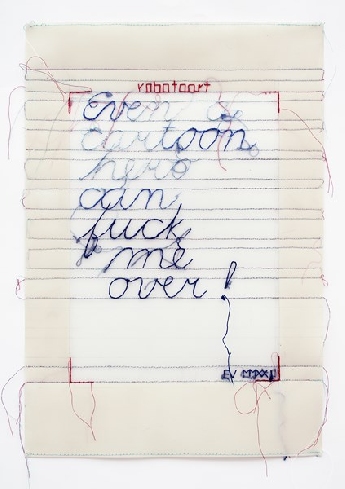 robotoart
Even a
cartoon
hero
can
fuck
me
over!